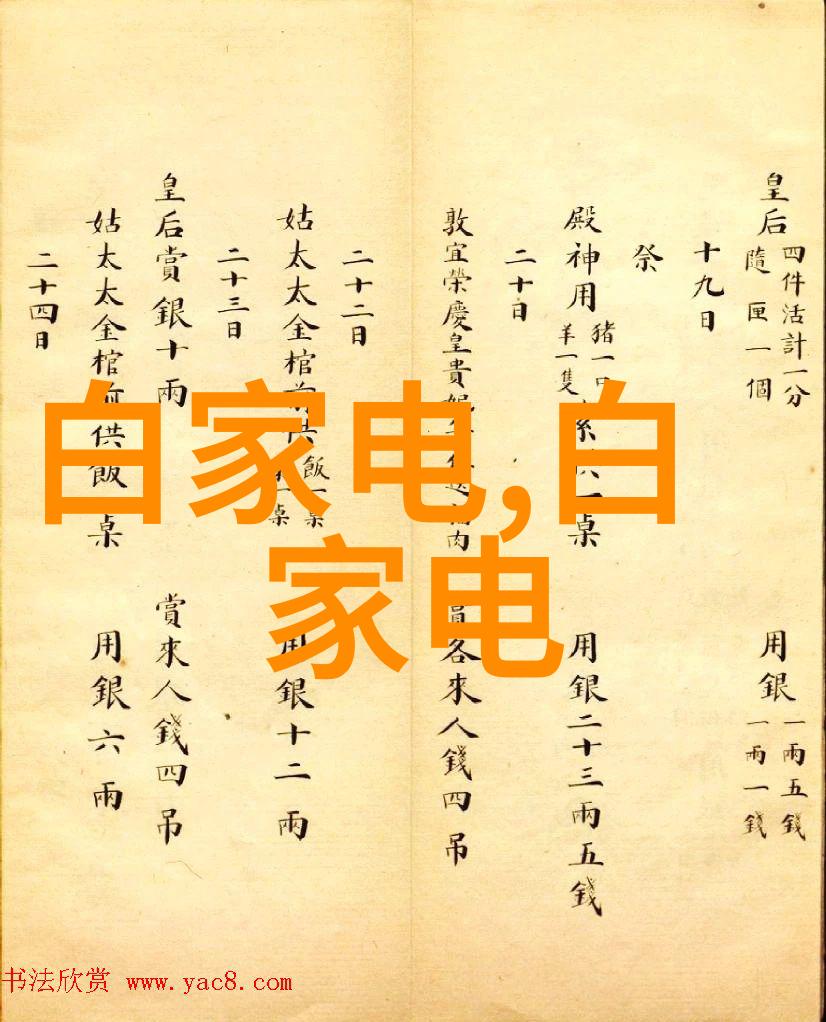 皇后 四件活計一分 隨匣一個 用銀 一兩五錢 一兩一錢
十九日
祭
殿神用 猪一口 羊一隻 供一桌 用銀二十三兩五錢
二十日
敦宜榮慶皇貴妃 肉 員各來人錢四吊
二十二日
姑太太金棺前供 飯一桌 一桌 用銀十二兩
二十三日
皇后賞銀十兩 賞來人錢四吊
姑太太金棺前供飯一桌 用銀六兩
二十四日
白家电,白
家电
书法欣赏 www.yac8.com